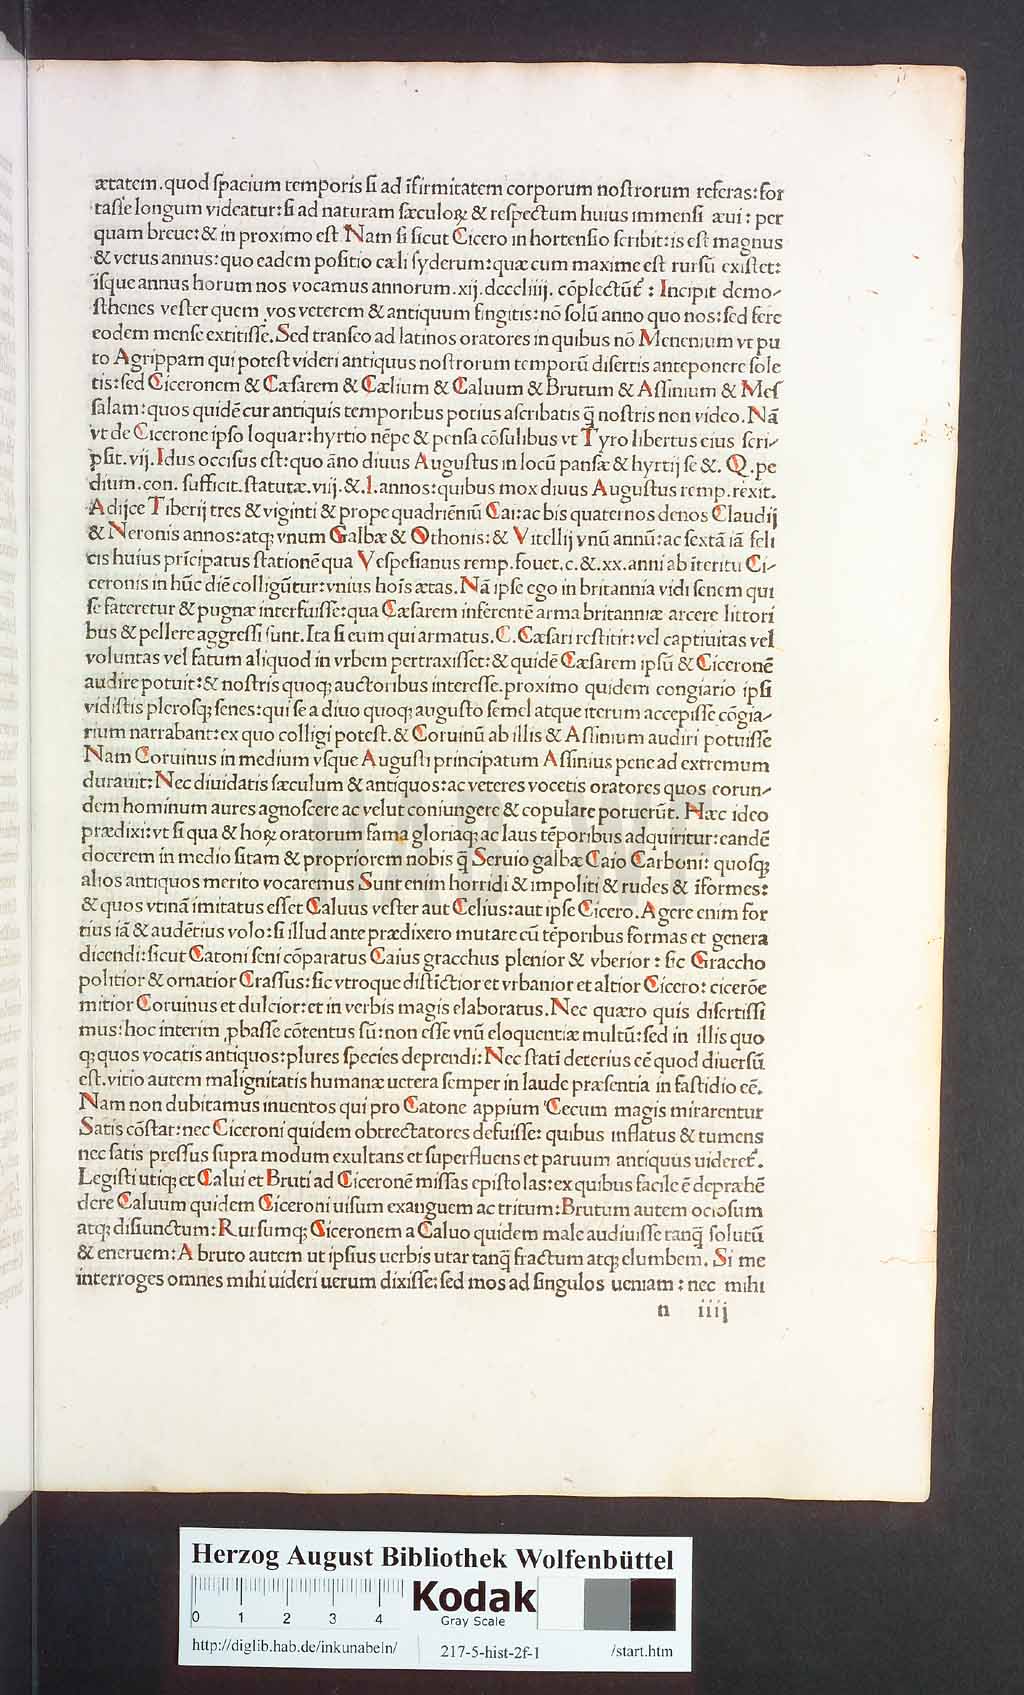 ætatem.quod spacium temporis si ad īfirmitatem corporum nostrorum referas:for
tasse longum videatur:si ad naturam sæculoꝝ & respectum huius immensi æui : per
quam breue:& in proximo est Nam si sicut Cicero in hortensio scribit:is est magnus
& verus annus:quo eadem positio cæli syderum:quæ cum maxime est rursū existet:
īsque annus horum nos vocamus annorum.xij.dccccliiij. cōplectūt᷑ : Incipit demo-
sthenes vester quem vos veterem & antiquum fingitis:nō solū anno quo nos:sed fere
eodem mense extitisse.Sed transeo ad latinos oratores in quibus nō Menenium vt pu
to Agrippam qui potest videri antiquus nostrorum temporū disertis anteponere sole
tis:sed Ciceronem & Cæsarem & Cælium & Caluum & Brutum & Assinium & Mes
salam:quos quidē cur antiquis temporibus potius ascribatis q̄ nostris non video.Nā
vt de Cicerone ipso loquar:hyrtio nēpe & pensa cōsulibus vt Tyro libertus eius scri-
psit.vij.Idus occisus est:quo āno diuus Augustus in locū pansæ & hyrtij se &. Q.pe
dium.con. sufficit.statutæ.viij.&.l.annos:quibus mox diuus Augustus remp.rexit.
Adijce Tiberij tres & viginti & prope quadriēniū Cai:ac bis quaternos denos Claudij
& Neronis annos:atq; vnum Galbæ & Othonis:& Vitellij vnū annū:ac sextā iā feli
cis huius prīcipatus stationē qua Vespesianus remp.fouet.c.&.xx.anni ab īteritu Ci-
ceronis in hūc diē colligūtur:vnius hoīs ætas.Nā ipse ego in britannia vidi senem qui
se fateretur & pugnæ interfuisse:qua Cæsarem inferentē arma britanniæ arcere littori
bus & pellere aggressi sunt.Ita si eum qui armatus.C.Cæsari restitit:vel captiuitas vel
voluntas vel fatum aliquod in vrbem pertraxisset:& quidē Cæsarem ipsū & Ciceronē
audire potuit:& nostris quoq; auctoribus interesse.proximo quidem congiario ipsi
vidistis plerosq; senes:qui se a diuo quoq; augusto semel atque iterum accepisse cōgia-
rium narrabant:ex quo colligi potest.& Coruinū ab illis & Assinium audiri potuisse
Nam Coruinus in medium vsque Augusti principatum Assinius pene ad extremum
durauit:Nec diuidatis sæculum & antiquos:ac veteres vocetis oratores quos eorun-
dem hominum aures agnoscere ac velut coniungere & copulare potuerūt. Hæc ideo
prædixi:vt si qua & hoꝝ oratorum fama gloriaq; ac laus tēporibus adquiritur:eandē
docerem in medio sitam & propriorem nobis q̄ Seruio galbæ Caio Carboni: quosq;
alios antiquos merito vocaremus Sunt enim horridi & impoliti & rudes & īformes:
& quos vtinā imitatus esset Caluus vester aut Celius:aut ipse Cicero.Agere enim for
tius iā & audētius volo:si illud ante prædixero mutare cū tēporibus formas et genera
dicendi:sicut Catoni seni cōparatus Caius gracchus plenior & vberior : sic Graccho
politior & ornatior Crassus:sic vtroque distīctior et vrbanior et altior Cicero: cicerōe
mitior Coruinus et dulcior:et in verbis magis elaboratus.Nec quæro quis disertissi
mus:hoc interim ꝓbasse cōtentus sū:non esse vnū eloquentiæ multū:sed in illis quo
q; quos vocatis antiquos:plures species deprendi:Nec statī deterius eē quod diuersū
est.vitio autem malignitatis humanæ uetera semper in laude præsentia in fastidio eē.
Nam non dubitamus inuentos qui pro Catone appium Cecum magis mirarentur
Satis cōstat:nec Ciceroni quidem obtrectatores defuisse: quibus inflatus & tumens
nec satis pressus supra modum exultans et superfluens et paruum antiquus uideret᷑.
Legisti utiq; et Calui et Bruti ad Ciceronē missas epistolas:ex quibus facile ē depræhē
dere Caluum quidem Ciceroni uisum exanguem ac tritum:Brutum autem ociosum
atq; disiunctum:Rursumq; Ciceronem a Caluo quidem male audiuisse tanq̄ solutū
& eneruem:A bruto autem ut ipsius uerbis utar tanq̄ fractum atq; elumbem. Si me
interroges omnes mihi uideri uerum dixisse:sed mos ad singulos ueniam : nec mihi
n iiij
HAB-WF
Herzog August Bibliothek Wolfenbüttel
0 1 2 3 4
Kodak
Gray Scale
http://diglib.hab.de/inkunabeln/ 217-5-hist-2f-1 /start.htm